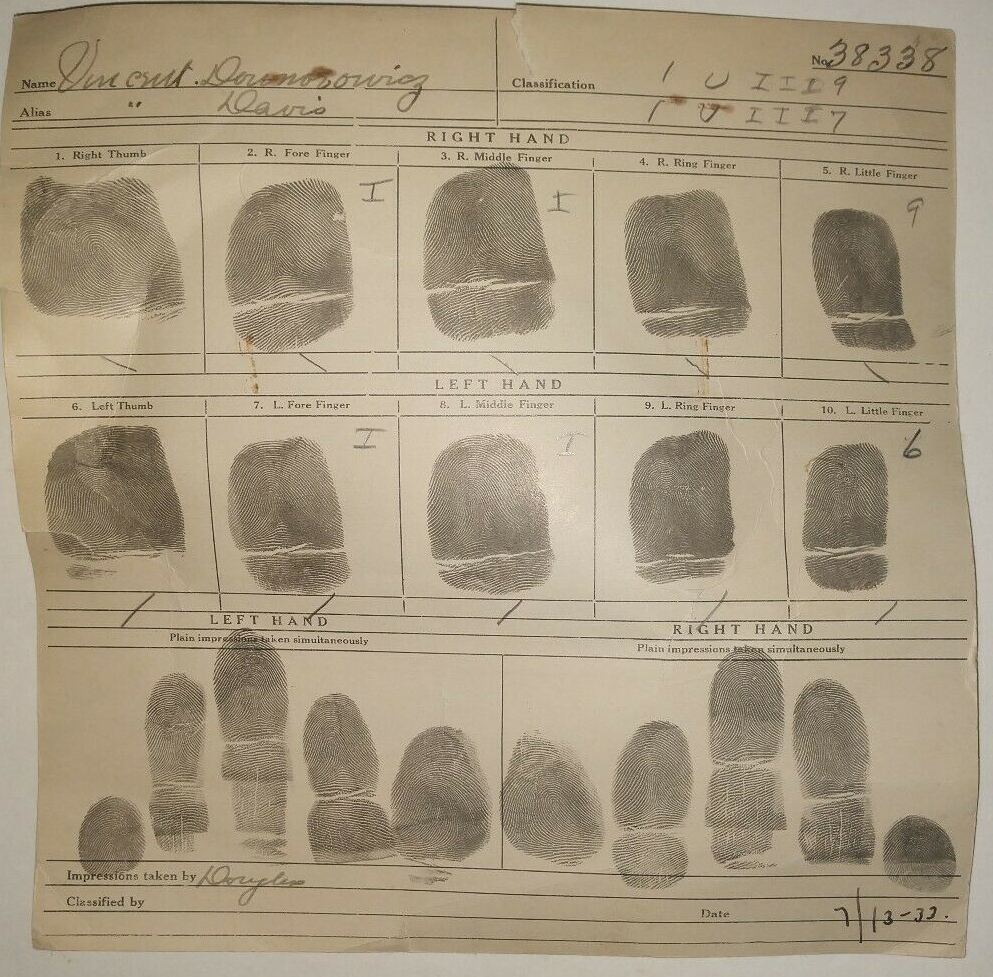 No 38338
Name Vincent Downorowicz Classification 1 U I I I 9
Alias " Davis 1 U I I I 7
RIGHT HAND
1. Right Thumb 2. R. Fore Finger 3. R. Middle Finger 4. R. Ring Finger 5. R. Little Finger
I I 9
\ \ \ \ \
LEFT HAND
6. Left Thumb 7. L. Fore Finger 8. L. Middle Finger 9. L. Ring Finger 10. L. Little Finger
I I 6
/ / / / /
LEFT HAND RIGHT HAND
Plain impressions taken simultaneously Plain impressions taken simultaneously
Impressions taken by Douglas
Classified by
Date 7/13-33.